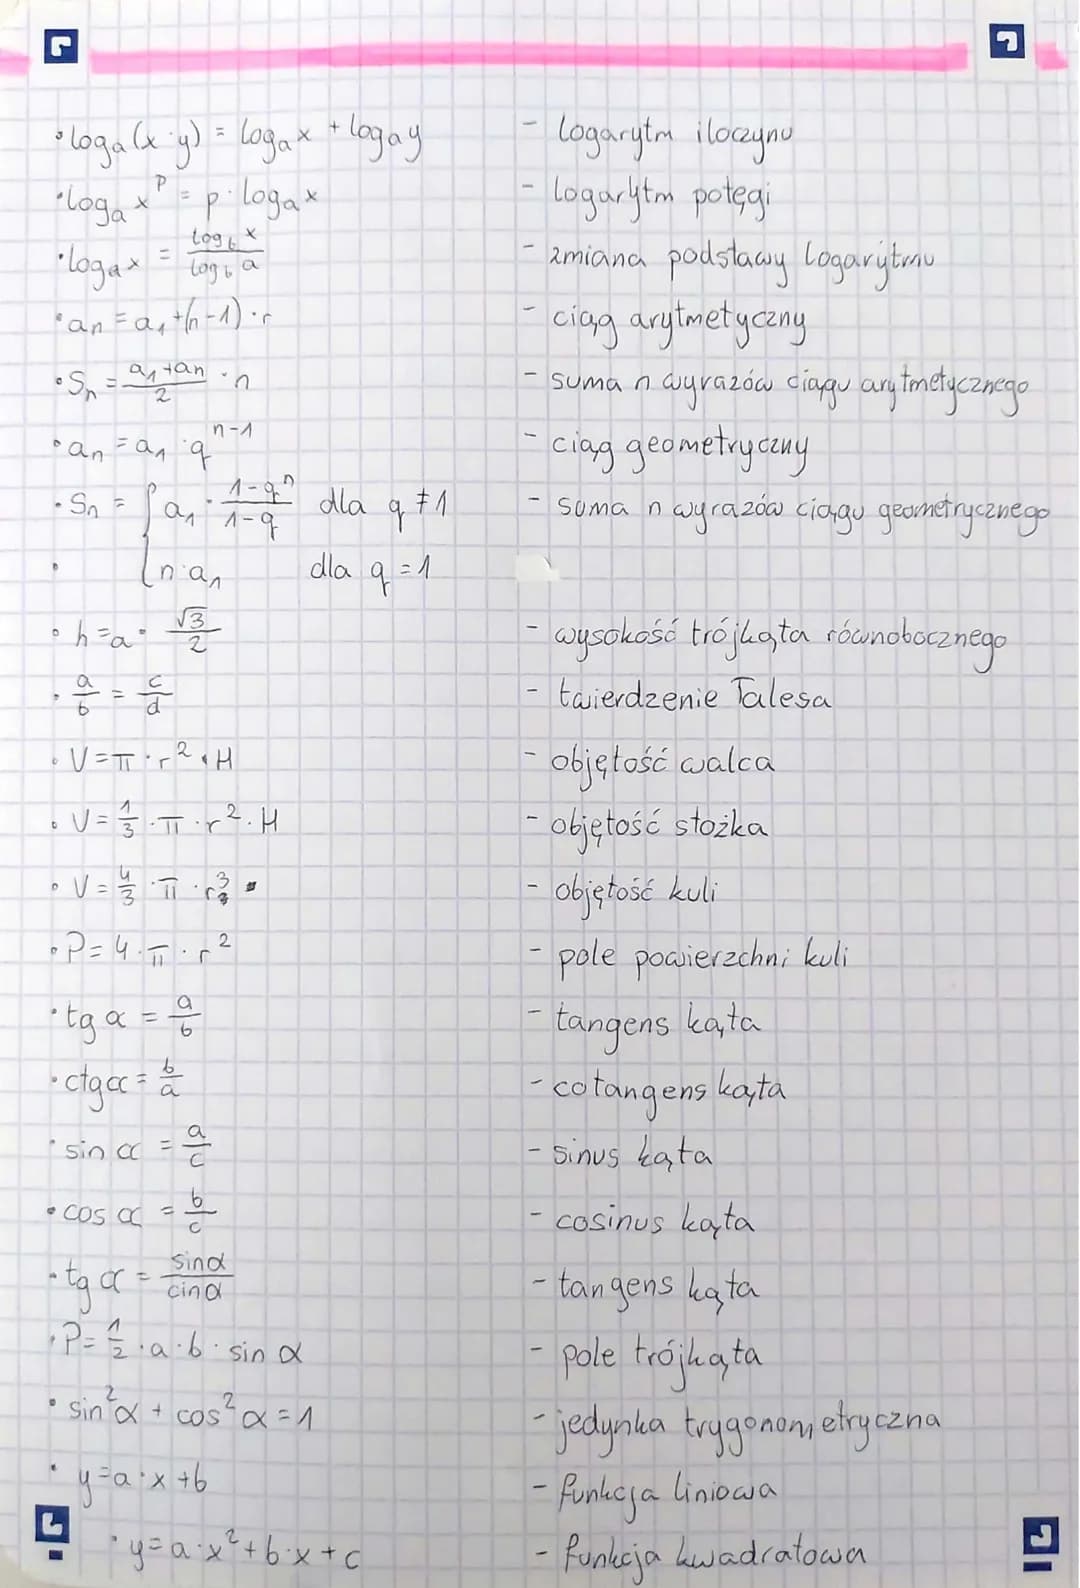 • logₐ(x·y) = logₐx + logₐy - logarytm iloczynu
• logₐxᵖ = p·logₐx - logarytm potęgi
• logₐx = log_b x / log_b a - zmiana podstawy logarytmu
• aₙ = a₁+(n-1)·r - ciąg arytmetyczny
• Sₙ = (a₁+aₙ)/2 · n - suma n wyrazów ciągu arytmetycznego
• aₙ = a₁·qⁿ⁻¹ - ciąg geometryczny
• Sₙ = { a₁ · (1-qⁿ)/(1-q) dla q ≠ 1 - suma n wyrazów ciągu geometrycznego
• n·a₁ dla q = 1
• h = a · √3/2 - wysokość trójkąta równobocznego
• a/b = c/d - twierdzenie Talesa
• V = π·r²·H - objętość walca
• V = 1/3·π·r²·H - objętość stożka
• V = 4/3·π·r³ - objętość kuli
• P = 4·π·r² - pole powierzchni kuli
• tg α = a/b - tangens kąta
• ctg α = b/a - cotangens kąta
• sin α = a/c - sinus kąta
• cos α = b/c - cosinus kąta
• tg α = sinα/cinα - tangens kąta
• P = 1/2·a·b·sin α - pole trójkąta
• sin²α + cos²α = 1 - jedynka trygonometryczna
• y = a·x+b - funkcja liniowa
• y = a·x²+b·x+c - funkcja kwadratowa